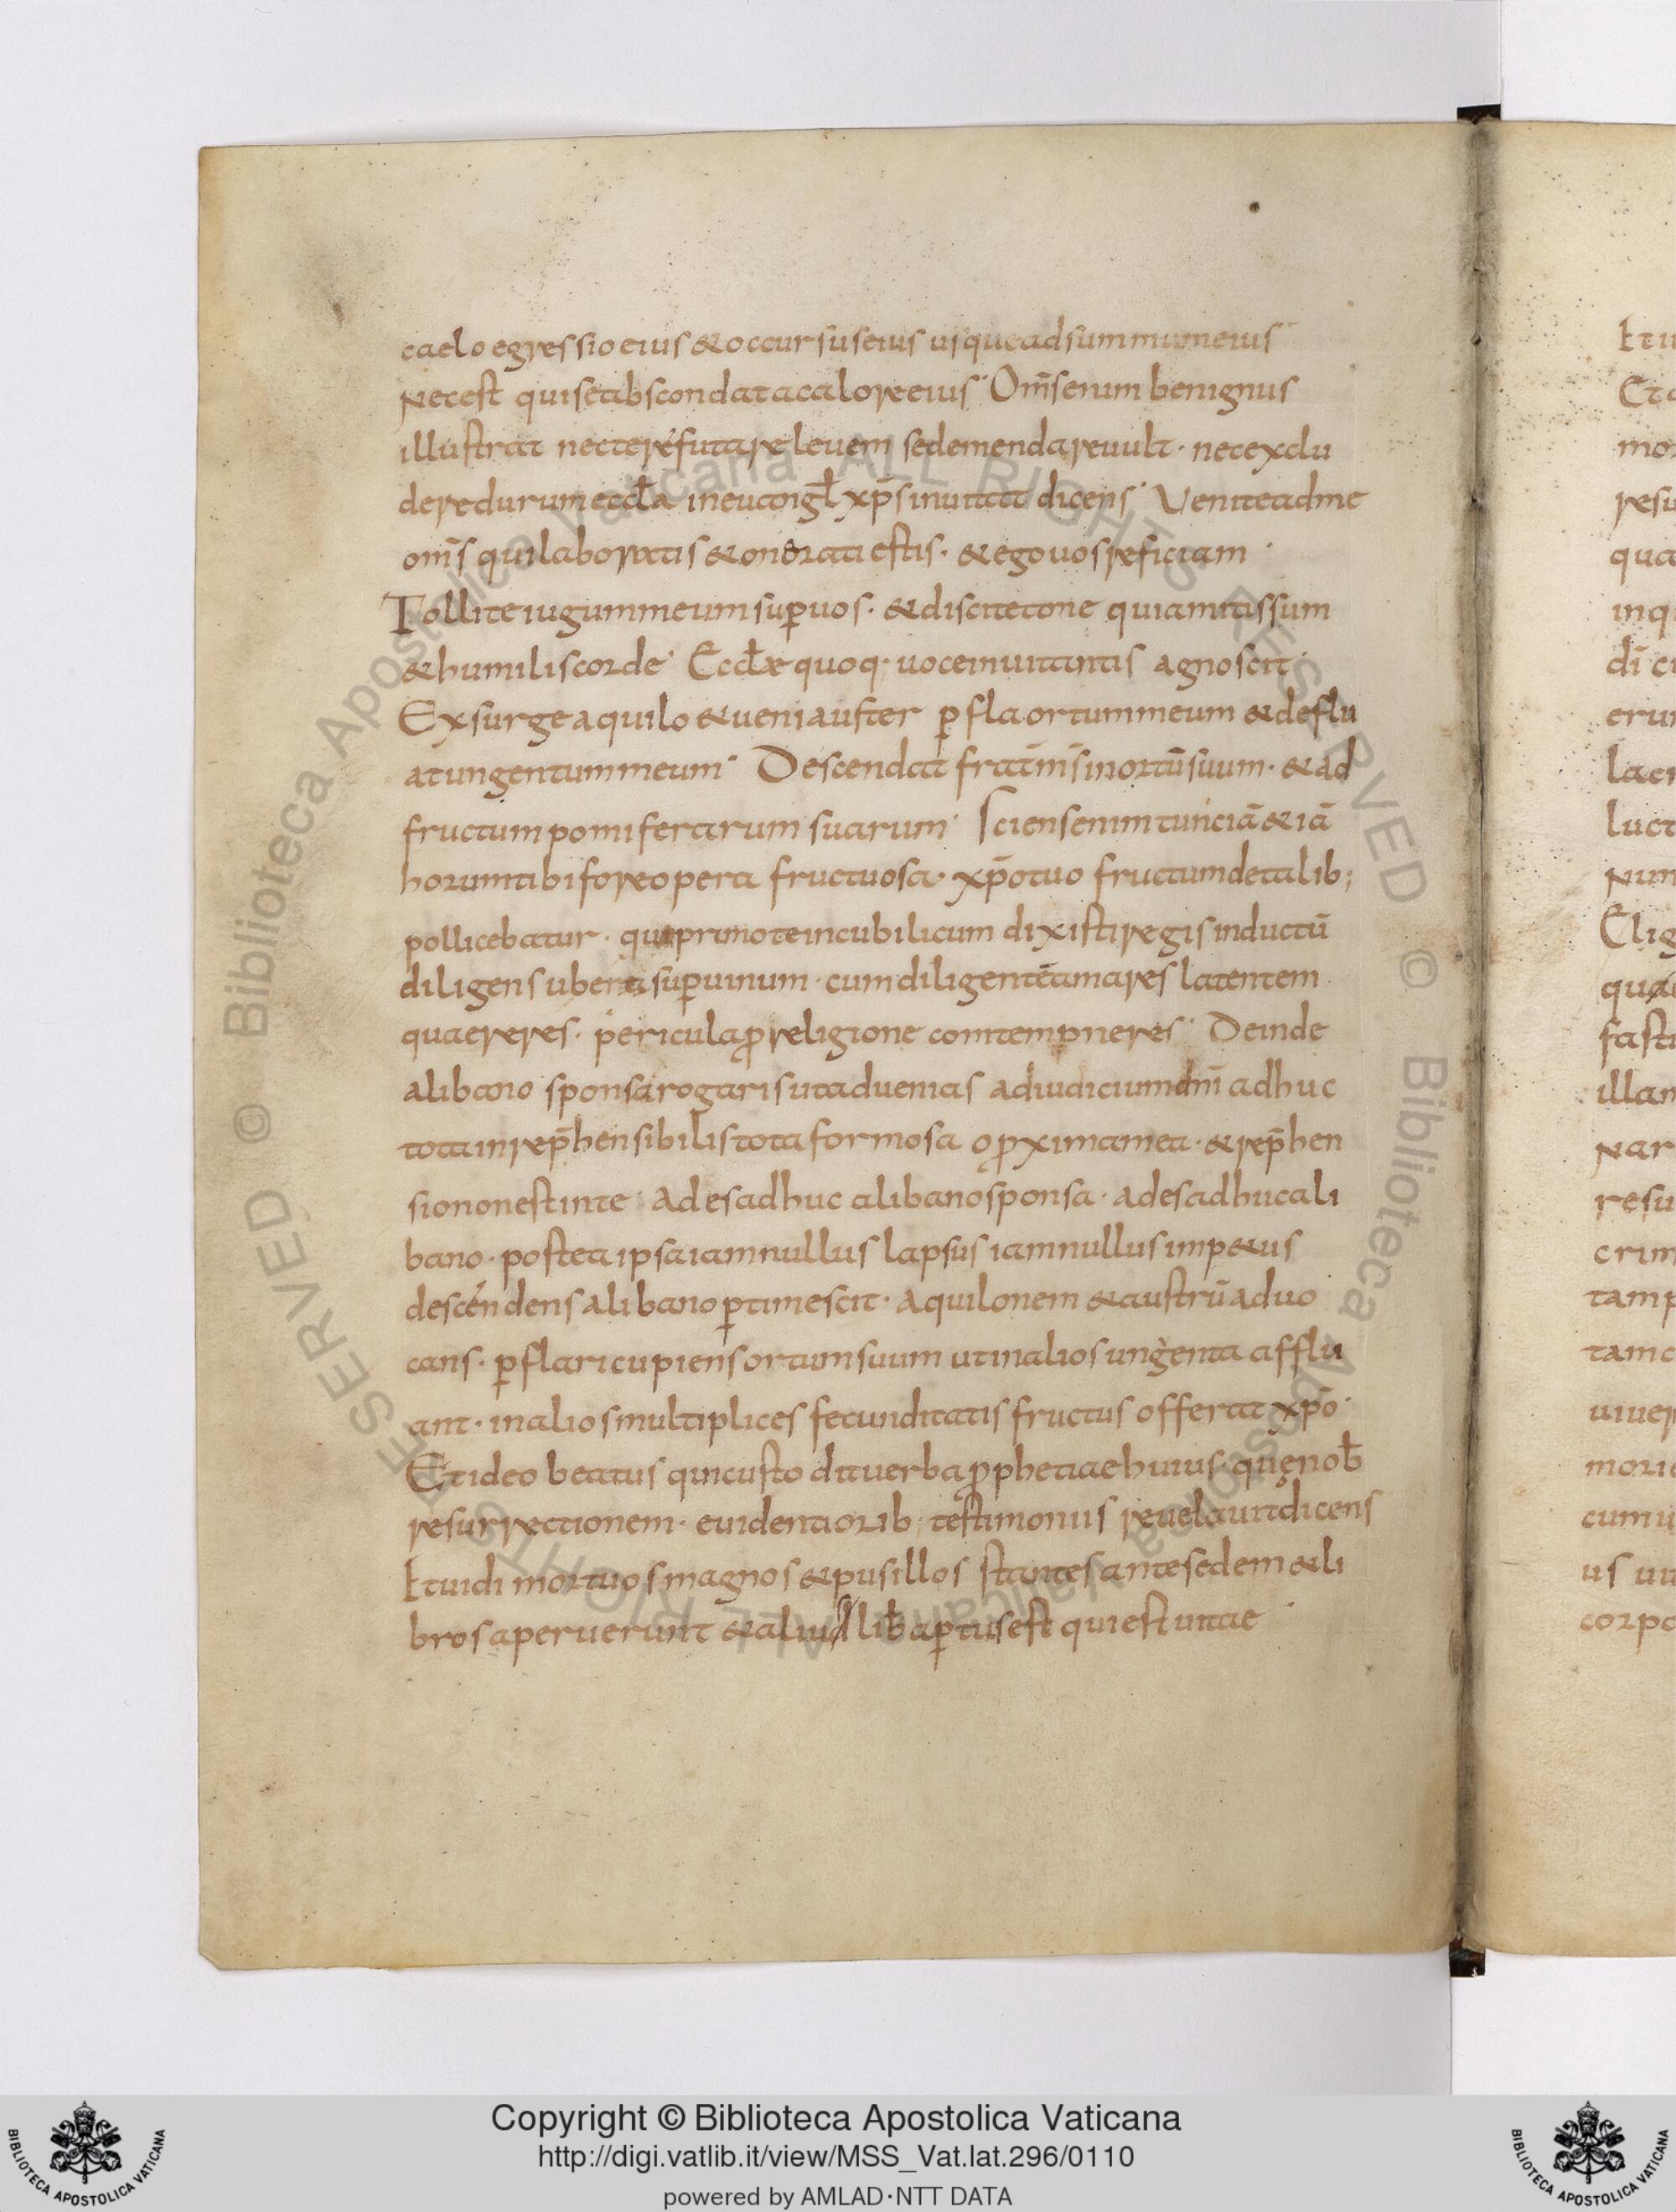 caelo egressio eius & occursus eius usque ad summum eius
Nec est qui se abscondat a calore eius Om̄s enim benignus
illustrat nec te refutare levem sed emendare uult · nec exclu
dere durum eccl̄a in euangl̄ xp̄s inuitat dicens Venite ad me
om̄s qui laboratis & onorati estis · & ego uos reficiam
Tollite iugum meum sup̱ uos · & discite a me quia mitis sum
& humilis corde Eccl̄æ quoq· uoce inuitantis agnoscit
Exsurge aquilo & ueni auster p̱fla ortum meum & deflu
at ungentum meum Descendat frat̄ m̄s in ortū suum · & ad
fructum pomiferarum suarum Sciens enim
horum tibi fore opera fructuosa · xp̄o tuo fructum de talib;
pollicebatur · qui primo te in cubilicum dixisti regis inductū
diligens ubera sup̱ uinum · cum diligentē amares latentem
quaereres · pericula ꝓ religione contempneres Deinde
a libano sponsa rogaris ut aduenias ad iudicium dn̄i adhuc
tota inrep̄hensibilis tota formosa o ꝓxima mea · & rep̄hen
sio non est in te Ades adhuc a libano sponsa · ades adhuc a li
bano · postea ipsa iam nullus lapsus iam nullus imp&us
descendens a libano p̱timescit · Aquilonem & austrū aduo
cans · p̱flari cupiens ortum suum ut in alios ungenta afflu
ant · in alios multiplices fecunditatis fructus offerat xp̄o
Et ideo beatus qui custodit uerba ꝓphetiae huius · quę nob̄
resurrectionem · euidentiorib· testimoniis reuelauit dicens
Et uidi mortuos magnos & pusillos stantes ante sedem & li
bros aperuerunt & alius lib̄ ap̱tus est qui est uitae
Copyright © Biblioteca Apostolica Vaticana
http://digi.vatlib.it/view/MSS_Vat.lat.296/0110
powered by AMLAD·NTT DATA
BIBLIOTECA APOSTOLICA VATICANA
BIBLIOTECA APOSTOLICA VATICANA